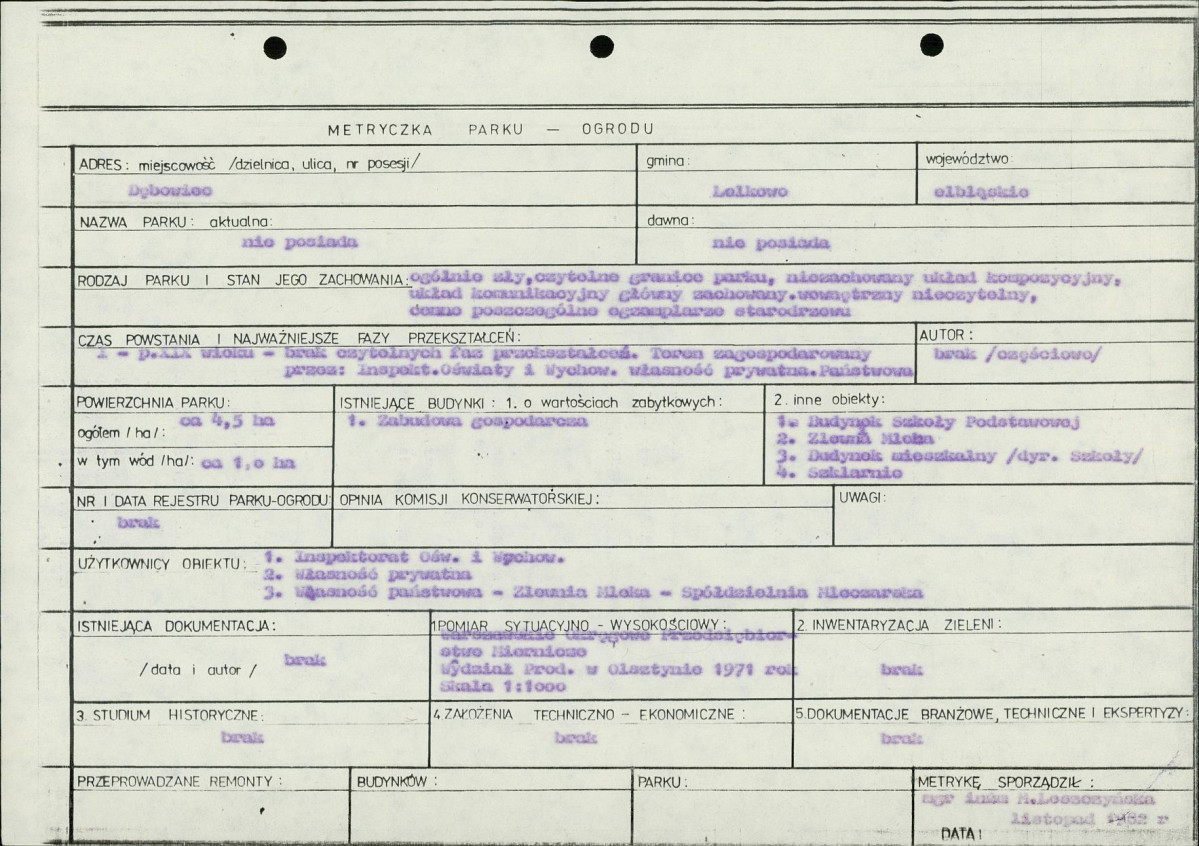 METRYCZKA PARKU — OGRODU
ADRES: miejscowość /dzielnica, ulica, nr posesji/
Dębowiec
gmina:
Lelkowo
województwo:
elbląskie
NAZWA PARKU: aktualna:
nie posiada
dawna:
nie posiada
RODZAJ PARKU I STAN JEGO ZACHOWANIA: ogólnie zły, czytelne granice parku, niezachowany układ kompozycyjny,
układ komunikacyjny główny zachowany. wewnętrzny nieczytelny,
cenne poszczególne egzemplarze starodrzewu
CZAS POWSTANIA I NAJWAŻNIEJSZE FAZY PRZEKSZTAŁCEŃ:
I - p.XIX wieku - brak czytelnych faz przekształceń. Teren zagospodarowany
przez: Inspekt.Oświaty i Wychow. własność prywatna.Państwowa
AUTOR:
brak /częściowo/
POWIERZCHNIA PARKU:
ogółem /ha/: ca 4,5 ha
w tym wód /ha/: ca 1,0 ha
ISTNIEJĄCE BUDYNKI: 1. o wartościach zabytkowych:
1. Zabudowa gospodarcza
2. inne obiekty:
1. Budynek Szkoły Podstawowej
2. Zlewnia Mleka
3. Budynek mieszkalny /dyr. Szkoły/
4. Szklarnie
NR I DATA REJESTRU PARKU-OGRODU:
brak
OPINIA KOMISJI KONSERWATORSKIEJ:
UWAGI:
UŻYTKOWNICY OBIEKTU:
1. Inspektorat Ośw. i Wychow.
2. Własność prywatna
3. Własność państwowa - Zlewnia Mleka - Spółdzielnia Mleczarska
ISTNIEJĄCA DOKUMENTACJA:
/data i autor/ brak
1.POMIAR SYTUACYJNO - WYSOKOŚCIOWY:
Warszawskie Okręgowe Przedsiębior-
stwo Miernicze
Wydział Prod. w Olsztynie 1971 rok
Skala 1:1000
2. INWENTARYZACJA ZIELENI:
brak
3. STUDIUM HISTORYCZNE:
brak
4.ZAŁOŻENIA TECHNICZNO - EKONOMICZNE:
brak
5.DOKUMENTACJE BRANŻOWE, TECHNICZNE I EKSPERTYZY:
brak
PRZEPROWADZANE REMONTY:
BUDYNKÓW:
PARKU:
METRYKĘ SPORZĄDZIŁ:
mgr inż. M.Leszczyńska
listopad 1982 r
DATA: